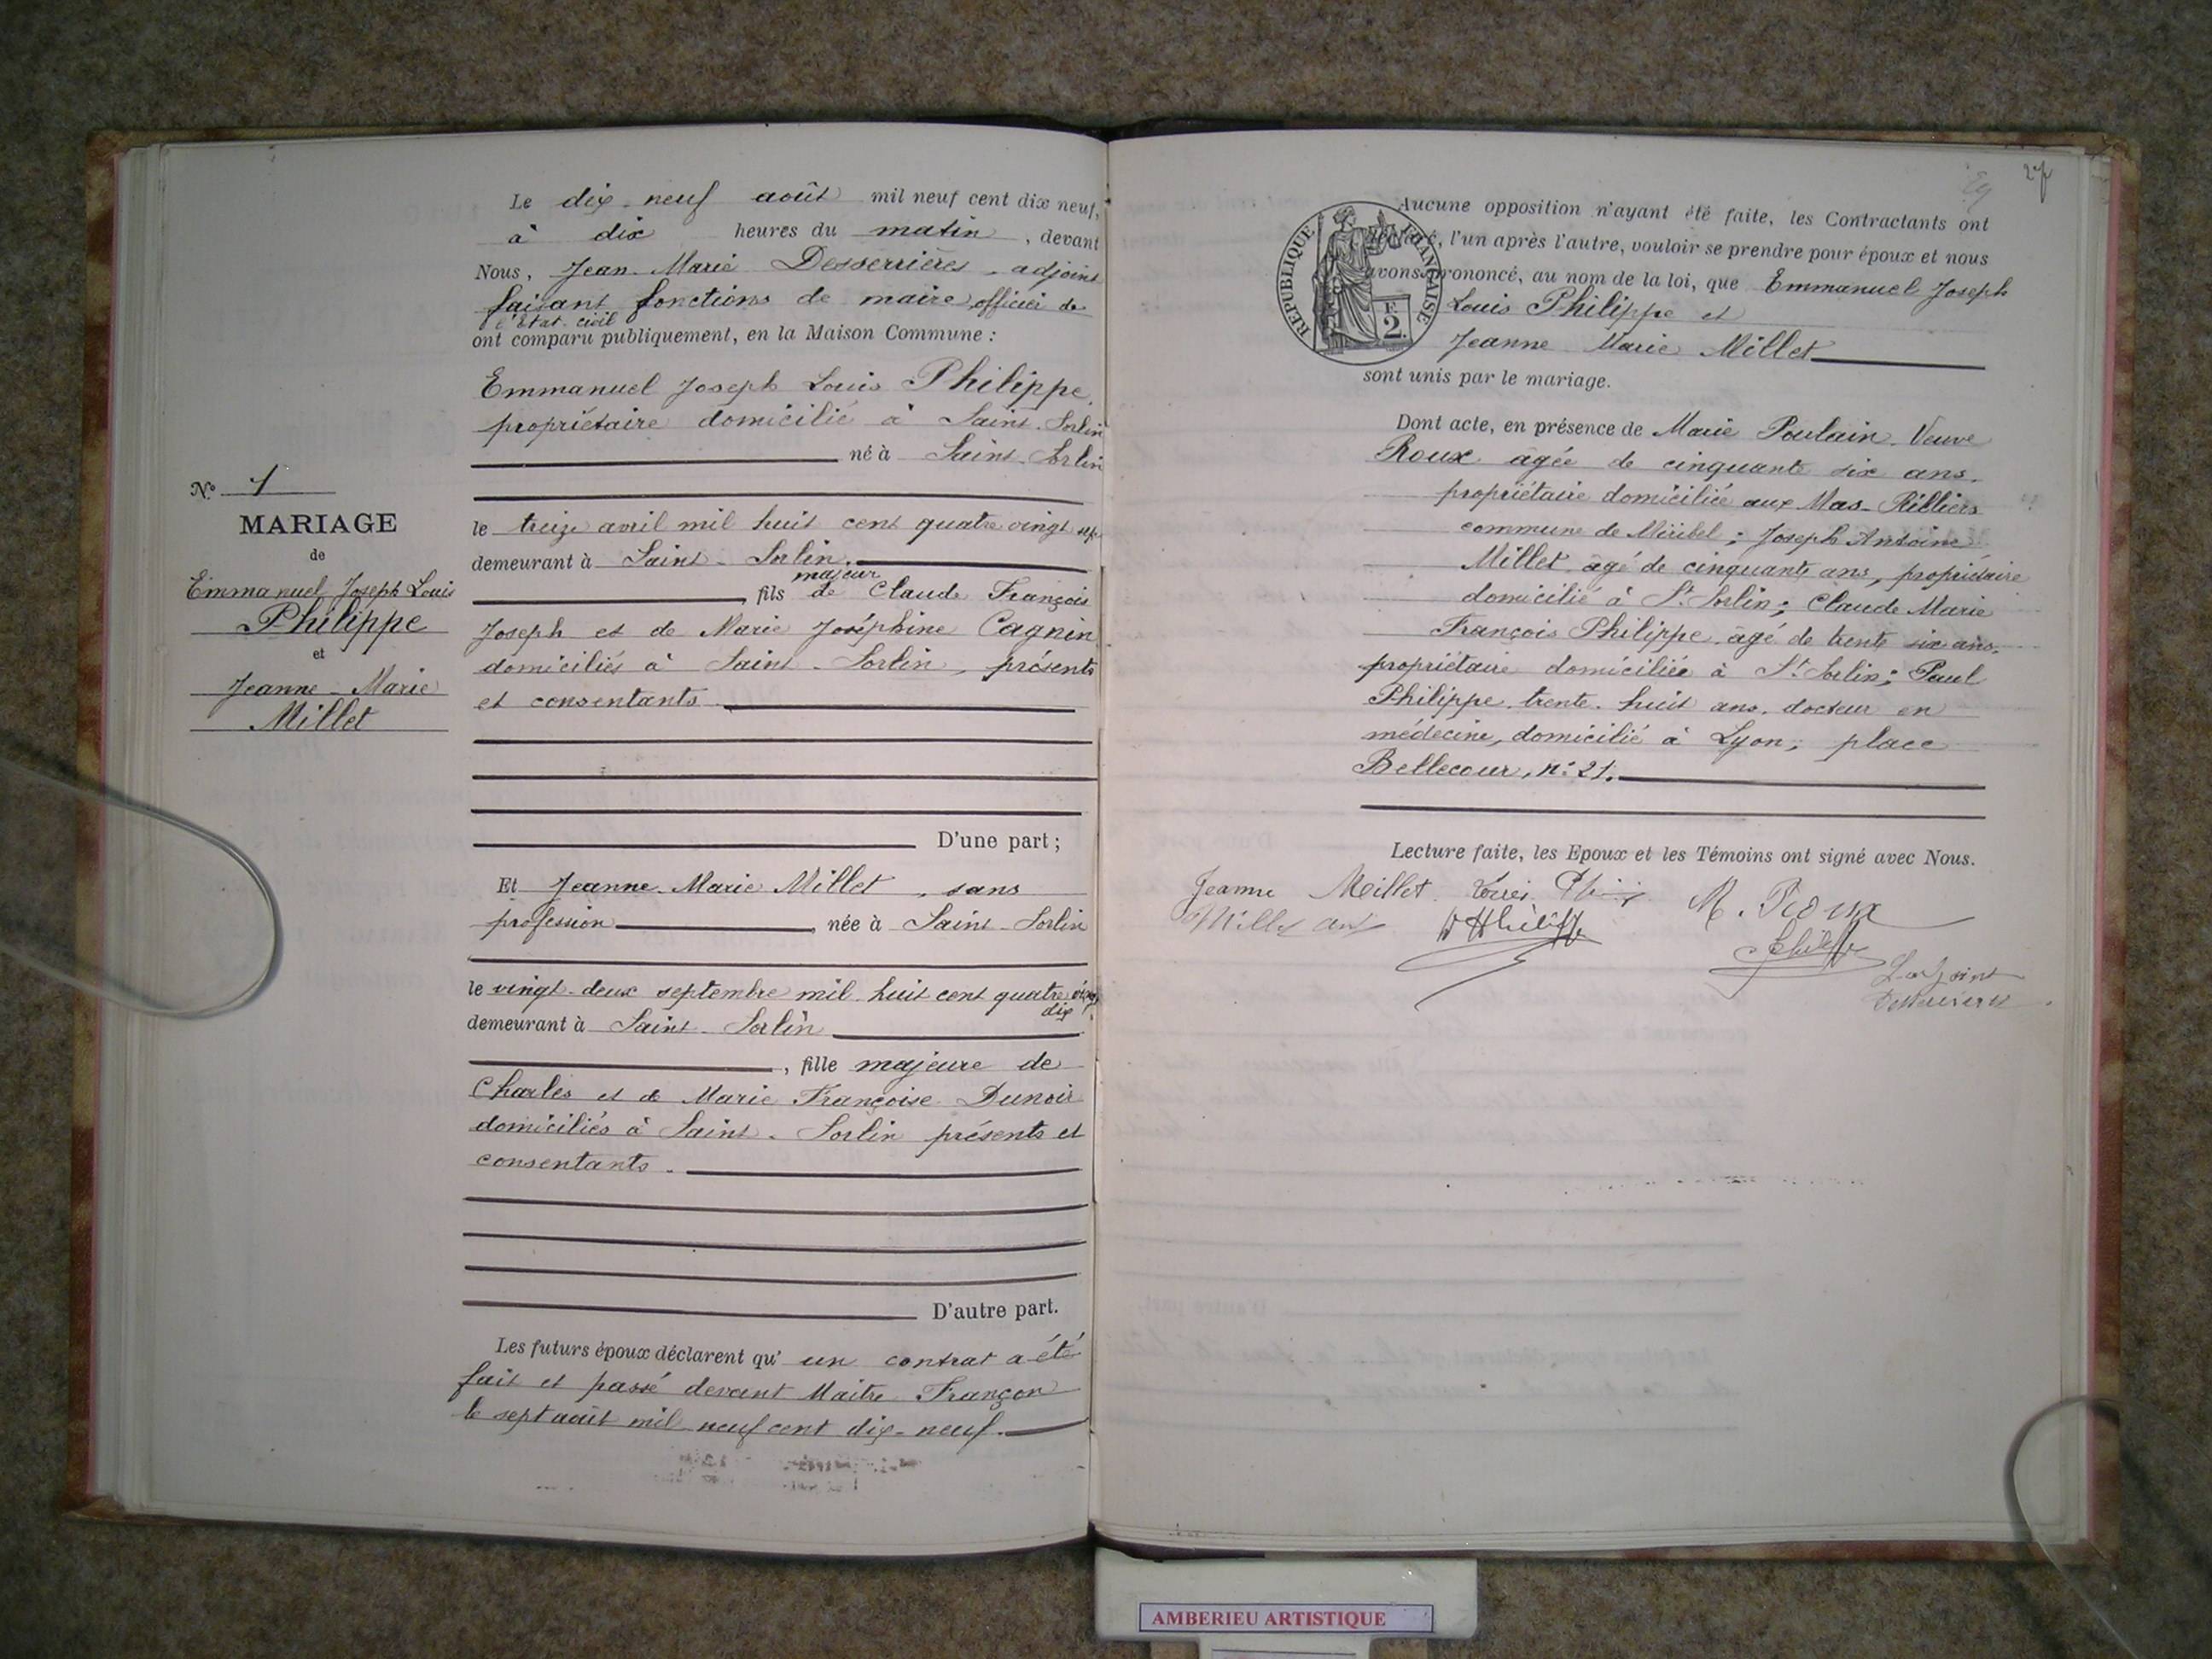 N° 1
MARIAGE
de
Emmanuel Joseph Louis
Philippe
et
Jeanne-Marie
Millet
Le dix-neuf août mil neuf cent dix neuf,
à dix heures du matin, devant
Nous, Jean-Marie Desserrières, adjoint
faisant fonctions de maire, officier de
l'état-civil
ont comparu publiquement, en la Maison Commune :
Emmanuel Joseph Louis Philippe,
propriétaire domicilié à Saint-Sorlin
né à Saint-Sorlin
le treize avril mil huit cent quatre vingt sept
demeurant à Saint-Sorlin.
majeur
fils de Claude François
Joseph et de Marie Joséphine Cagnin
domiciliés à Saint-Sorlin, présents
et consentants
D'une part ;
Et Jeanne-Marie Millet, sans
profession, née à Saint-Sorlin
le vingt-deux septembre mil huit cent quatre vingt
dix
demeurant à Saint-Sorlin
, fille majeure de
Charles et de Marie Françoise Dunoir
domiciliés à Saint-Sorlin présents et
consentants.
D'autre part.
Les futurs époux déclarent qu'un contrat a été
fait et passé devant Maitre Françon
le sept août mil neuf cent dix-neuf.
27
RÉPUBLIQUE FRANÇAISE
F.
2.
Aucune opposition n'ayant été faite, les Contractants ont
déclaré, l'un après l'autre, vouloir se prendre pour époux et nous
avons prononcé, au nom de la loi, que Emmanuel Joseph
Louis Philippe et
Jeanne Marie Millet
sont unis par le mariage.
Dont acte, en présence de Marie Poulain Veuve
Roux âgée de cinquante six ans.
propriétaire domiciliée aux Mas-Rilliers
commune de Miribel ; Joseph Antoine
Millet âgé de cinquante ans, propriétaire
domicilié à St Sorlin ; Claude Marie
François Philippe âgé de trente six ans.
propriétaire domiciliée à St Sorlin ; Paul
Philippe trente-huit ans, docteur en
médecine, domicilié à Lyon, place
Bellecour, n° 21.
Lecture faite, les Epoux et les Témoins ont signé avec Nous.
Jeanne Millet M. Roux
Millet ant
Philippe
L'adjoint
Desserrières
AMBERIEU ARTISTIQUE